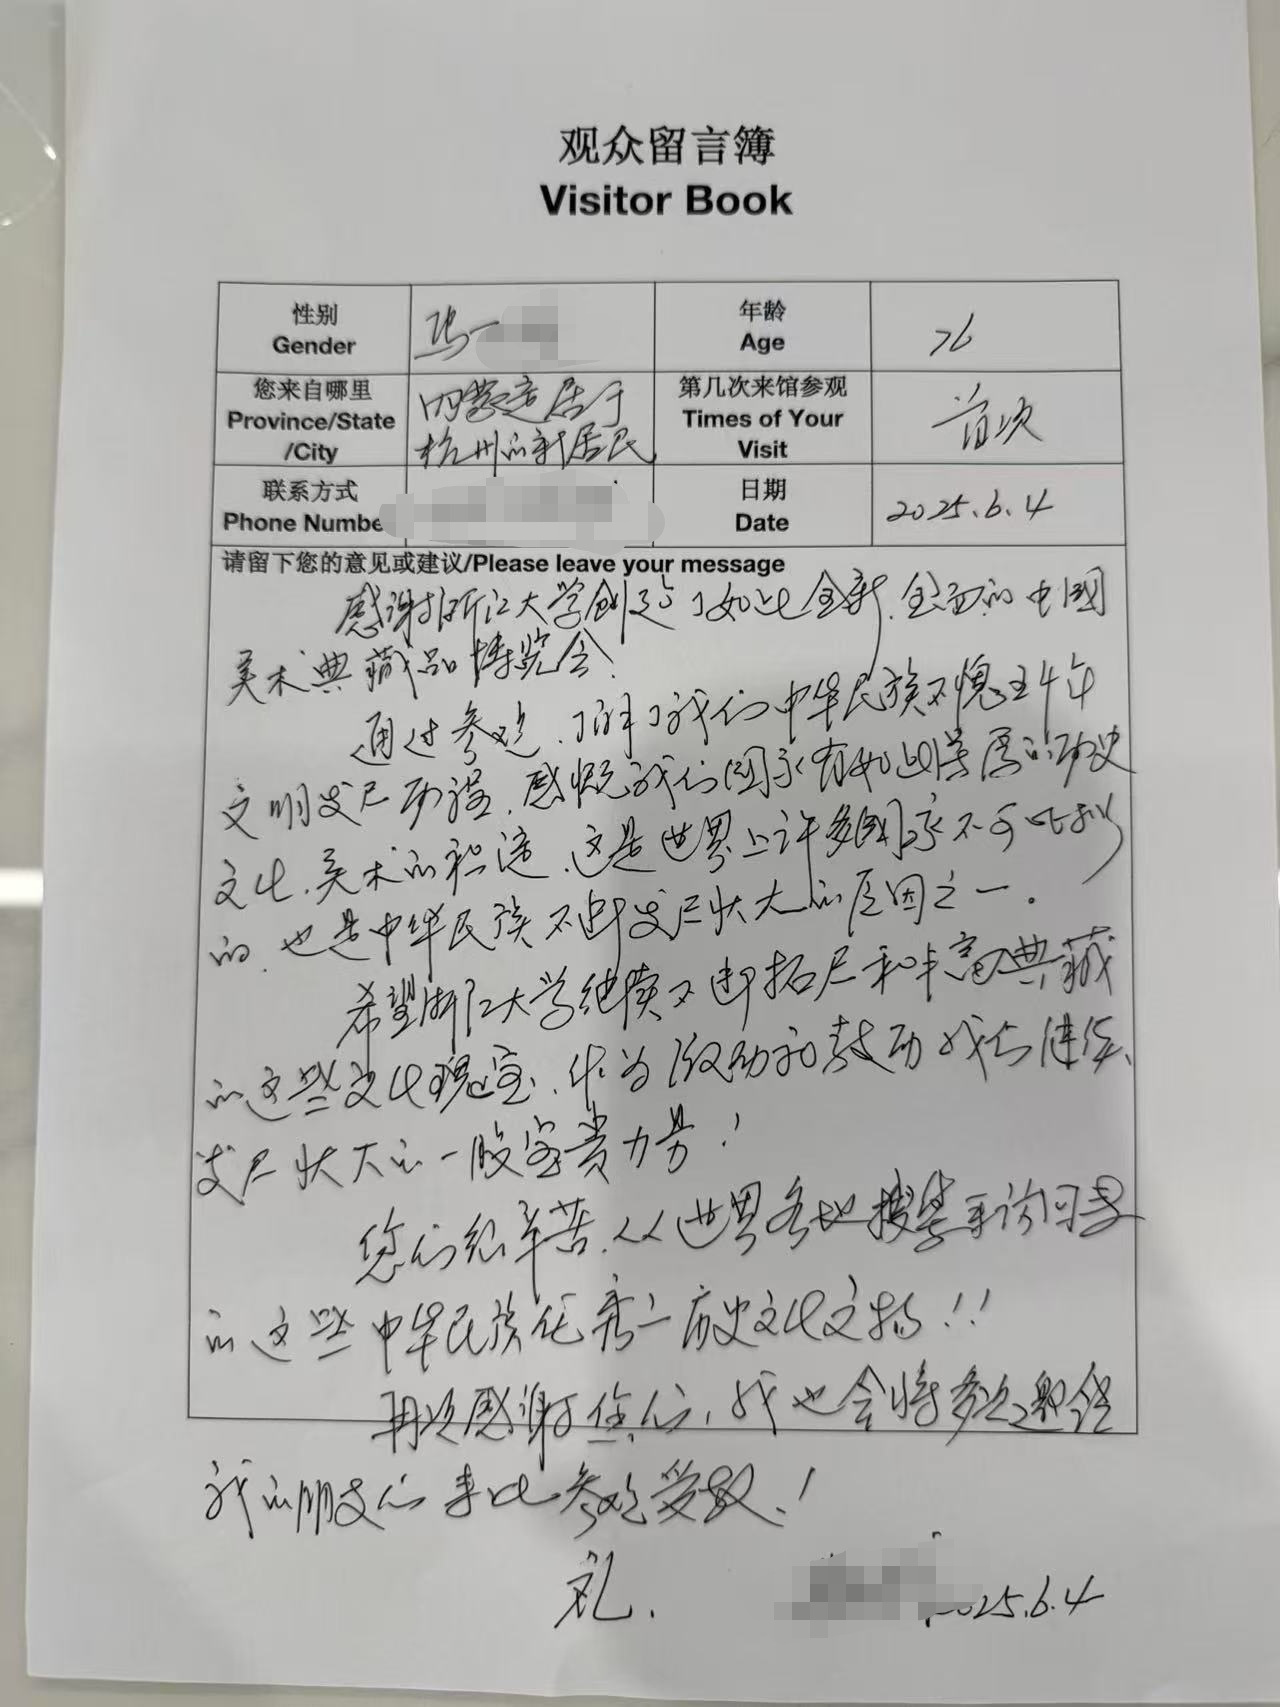 观众留言簿
Visitor Book
性别
Gender
冯一
年龄
Age
76
您来自哪里
Province/State
/City
内蒙迁居于
杭州的新居民
第几次来馆参观
Times of Your
Visit
首次
联系方式
Phone Numbe
日期
Date
2025.6.4
请留下您的意见或建议/Please leave your message
感谢浙江大学创建了如此全新、全面的中国
美术典藏品博览会!
通过参观,了解了我们中华民族不愧五千年
文明发展历程,感慨我们国家有如此浓厚的历史
文化、美术的积淀,这是世界上许多国家不可比拟
的,也是中华民族不断发展壮大的原因之一。
希望浙江大学继续不断拓展和丰富典藏
的这些文化瑰宝,作为激励和鼓动我们继续、
发展壮大的一股宝贵力量!
您们很辛苦,从世界各地搜集来
的这些中华民族优秀之历史文化文物!!
再次感谢您们,我也会将多次邀约
我的朋友们来此参观受教!
礼.
2025.6.4